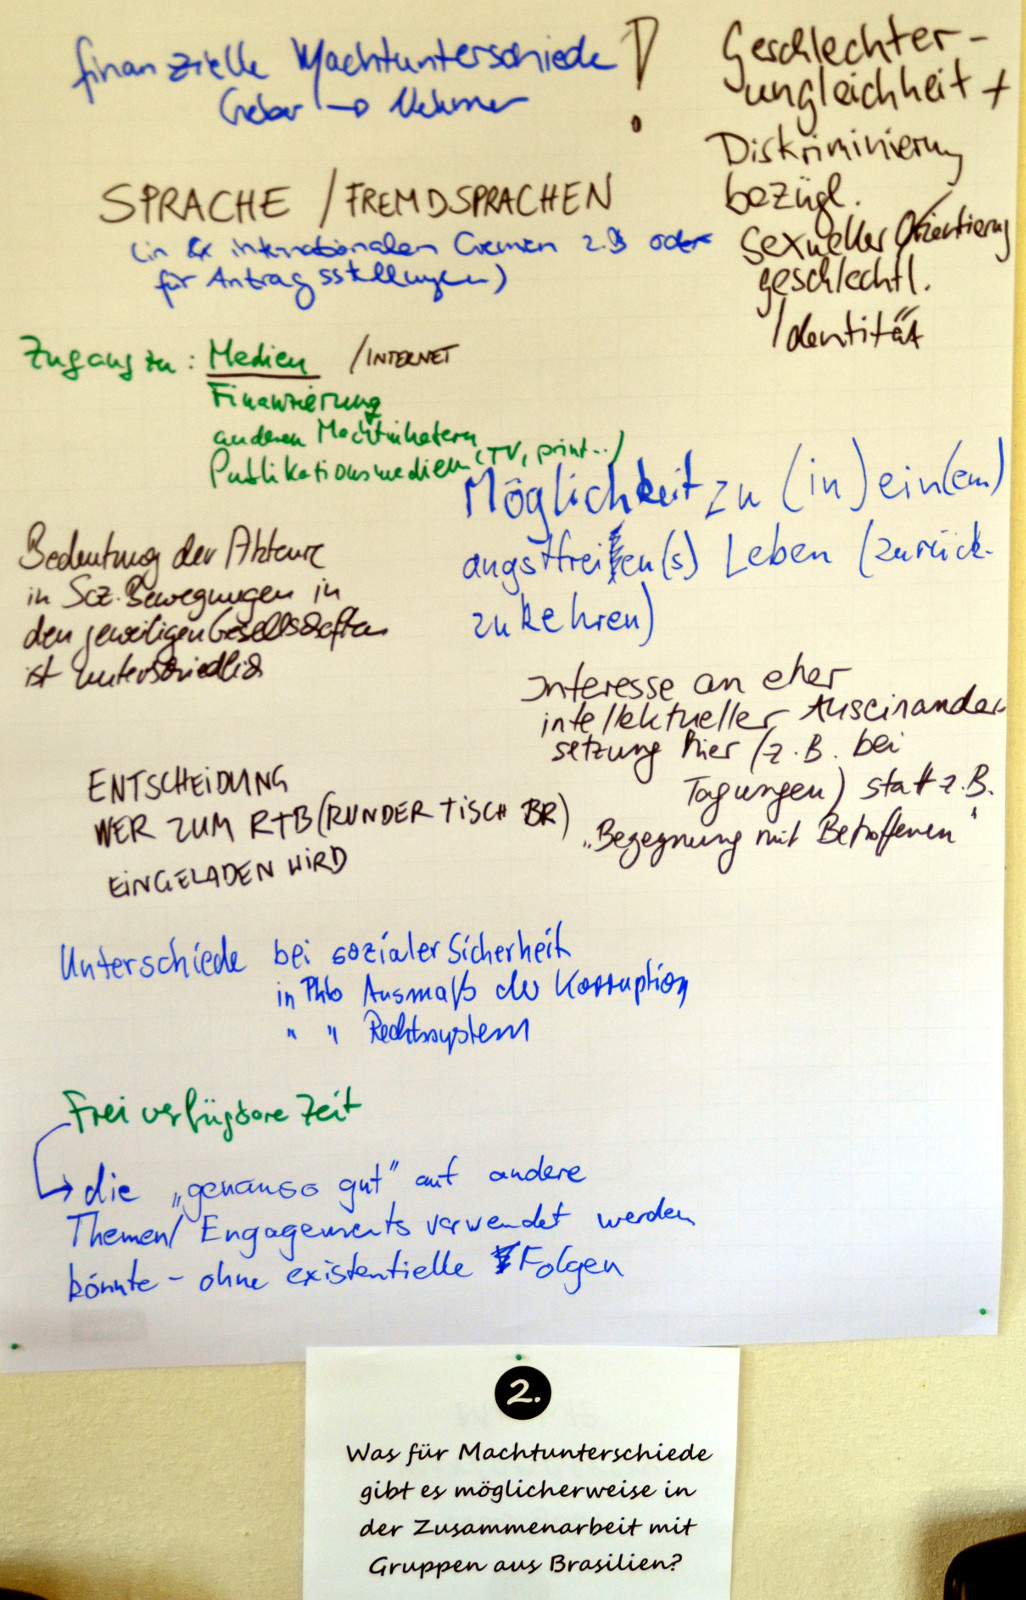 finanzielle Machtunterschiede !
Geber → Nehmer
Geschlechter-
ungleichheit +
Diskriminierung
bezügl.
sexueller Orientierung
geschlechtl.
Identität
SPRACHE / FREMDSPRACHEN
(in internationalen Gremien z.B oder
für Antragsstellungen)
Zugang zu: Medien / INTERNET
Finanzierung
anderen Machtinhabern
Publikationsmedien (TV, print..)
Möglichkeit zu (in) ein(em)
angstfreien(s) Leben (zurück-
zukehren)
Bedeutung der Akteure
in Soz. Bewegungen in
den jeweiligen Gesellschaften
ist unterschiedlich
Interesse an eher
intellektueller Auseinander-
setzung hier (z.B. bei
Tagungen) statt z.B.
„Begegnung mit Betroffenen"
ENTSCHEIDUNG
WER ZUM RTB (RUNDER TISCH BR)
EINGELADEN WIRD
Unterschiede bei sozialer Sicherheit
in Ausmaß der Korruption
" " Rechtssystem
Frei verfügbare Zeit
→ die „genauso gut" auf andere
Themen/ Engagements verwendet werden
könnte - ohne existentielle Folgen
2.
Was für Machtunterschiede
gibt es möglicherweise in
der Zusammenarbeit mit
Gruppen aus Brasilien?